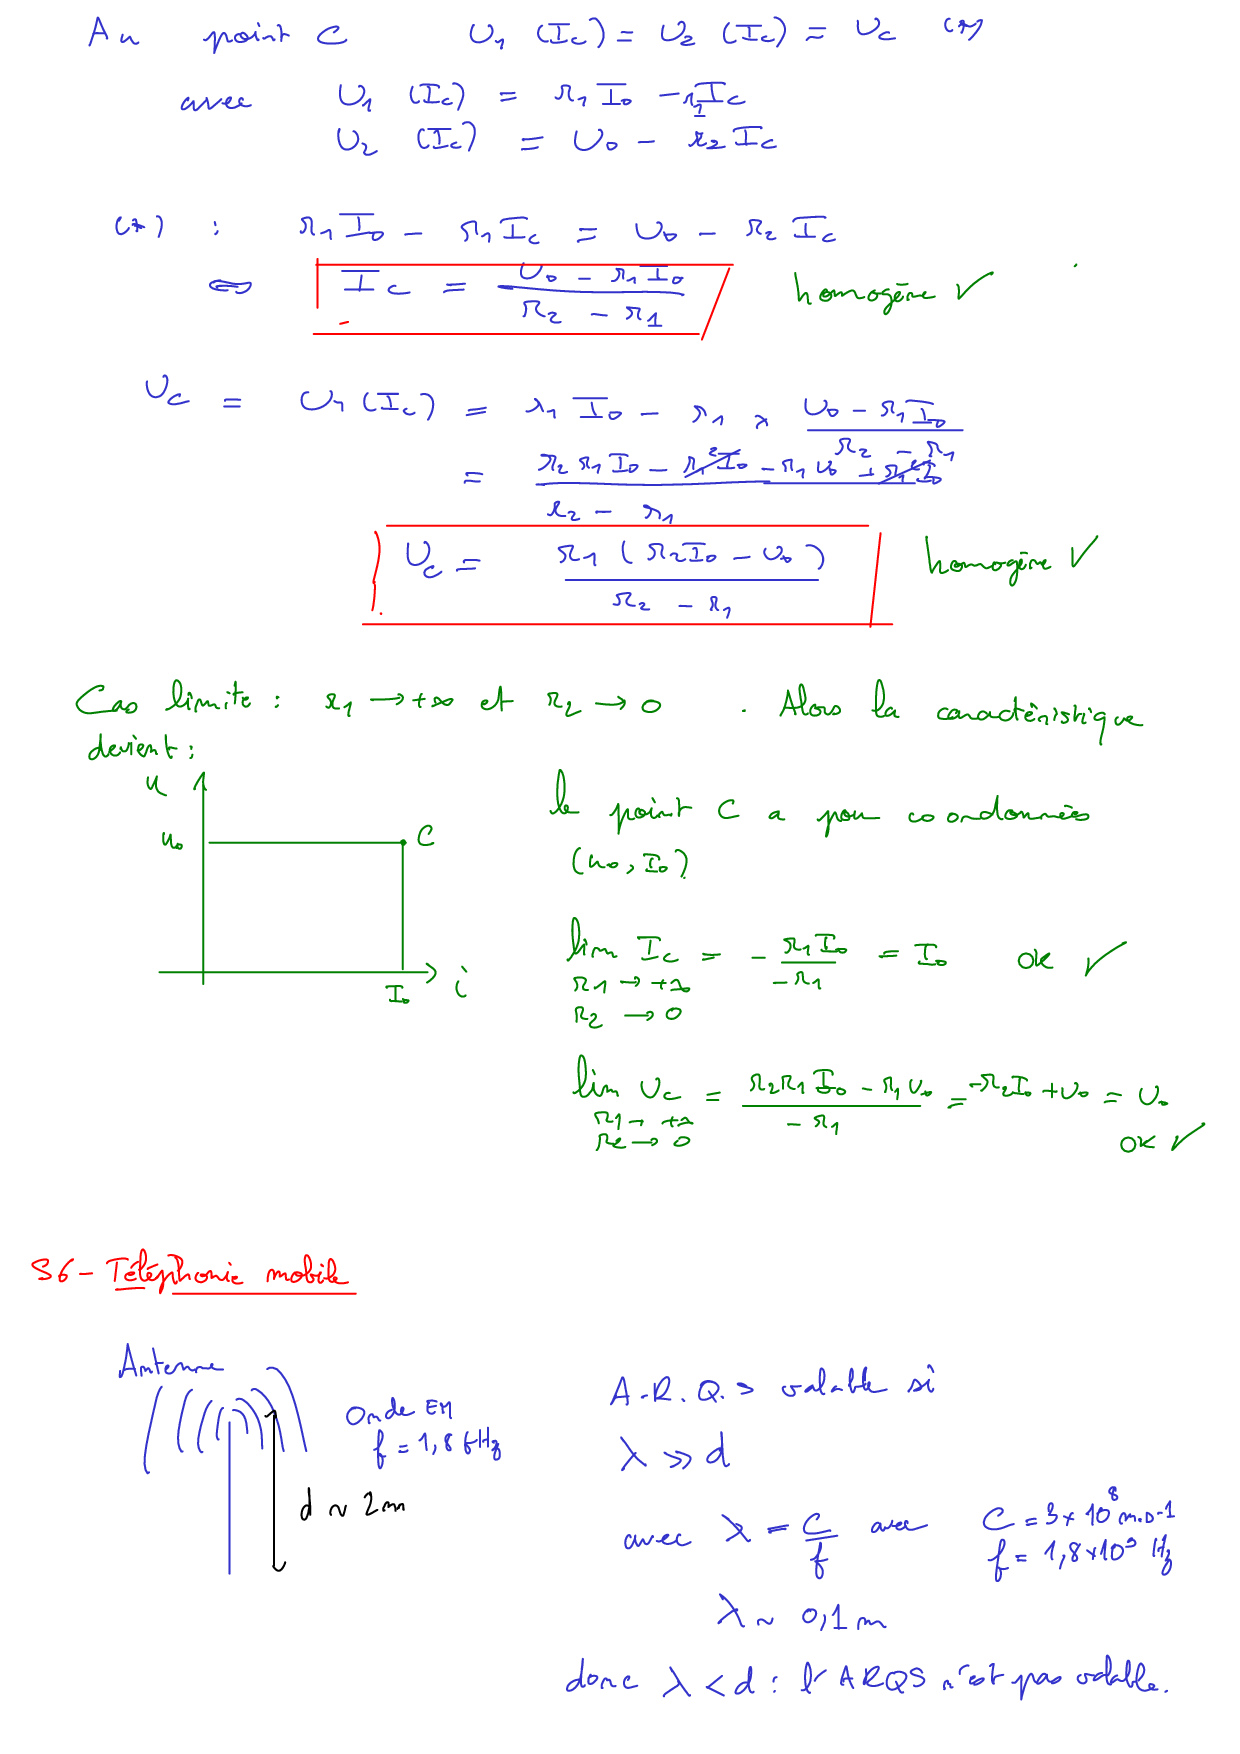 Au point C U₁ (I_c) = U₂ (I_c) = U_c (*)
avec U₁ (I_c) = r₁ I₀ - r₁ I_c
U₂ (I_c) = U₀ - r₂ I_c
(*) : r₁ I₀ - r₁ I_c = U₀ - r₂ I_c
⇔ I_c = (U₀ - r₁ I₀) / (r₂ - r₁) homogène ✓
U_c = U₁ (I_c) = r₁ I₀ - r₁ × (U₀ - r₁ I₀) / (r₂ - r₁)
= (r₂ r₁ I₀ - r₁² I₀ - r₁ U₀ + r₁² I₀) / (r₂ - r₁)
U_c = r₁ (r₂ I₀ - U₀) / (r₂ - r₁) homogène ✓
Cas limite : r₁ → +∞ et r₂ → 0 . Alors la caractéristique
devient :
u
u₀
C
I₀
i
le point C a pour coordonnées
(u₀, I₀)
lim I_c = - r₁ I₀ / - r₁ = I₀ ok ✓
r₁ → +∞
r₂ → 0
lim U_c = (r₂ r₁ I₀ - r₁ U₀) / - r₁ = -r₂ I₀ + U₀ = U₀
r₁ → +∞
r₂ → 0
ok ✓
S6 - Téléphonie mobile
Antenne
Onde EM
f = 1,8 GHz
d ~ 2m
A.R.Q.S valable si
λ ≫ d
avec λ = c / f avec c = 3 × 10⁸ m.s-1
f = 1,8 × 10⁹ Hz
λ ~ 0,1 m
donc λ < d : l'ARQS n'est pas valable.